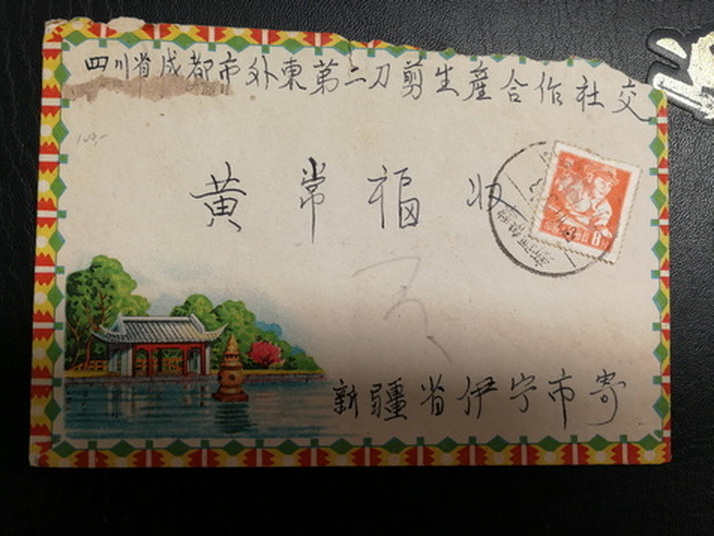 四川省成都市外東第二刀剪生産合作社交
黄常福收
新疆省伊宁市寄